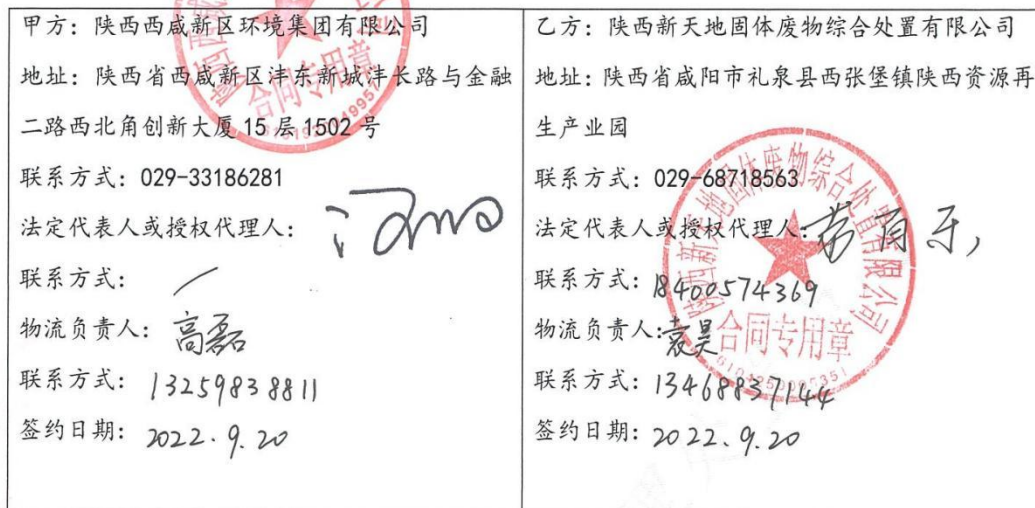 甲方：陕西西咸新区环境集团有限公司
地址：陕西省西咸新区沣东新城沣长路与金融
二路西北角创新大厦 15 层 1502 号
联系方式：029-33186281
法定代表人或授权代理人：
联系方式：
物流负责人：高磊
联系方式：13259838811
签约日期：2022.9.20
合同专用章
乙方：陕西新天地固体废物综合处置有限公司
地址：陕西省咸阳市礼泉县西张堡镇陕西资源再
生产业园
联系方式：029-68718563
法定代表人或授权代理人：
联系方式：18400574369
物流负责人：袁昊
联系方式：13468837144
签约日期：2022.9.20
陕西新天地固体废物综合处置有限公司
合同专用章